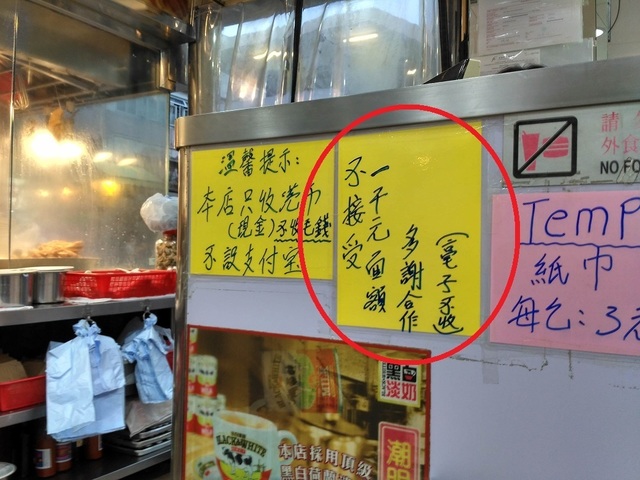 溫馨提示:
本店只收港币
(現金)不收毛錢
不設支付宝
不接受
一千元面額
多謝合作
(電子不收
請
外食
NO FO
TemP
紙巾
每包:3元
BLACK&WHITE
黑白
淡奶
本店採用頂級
黑白荷蘭
潮